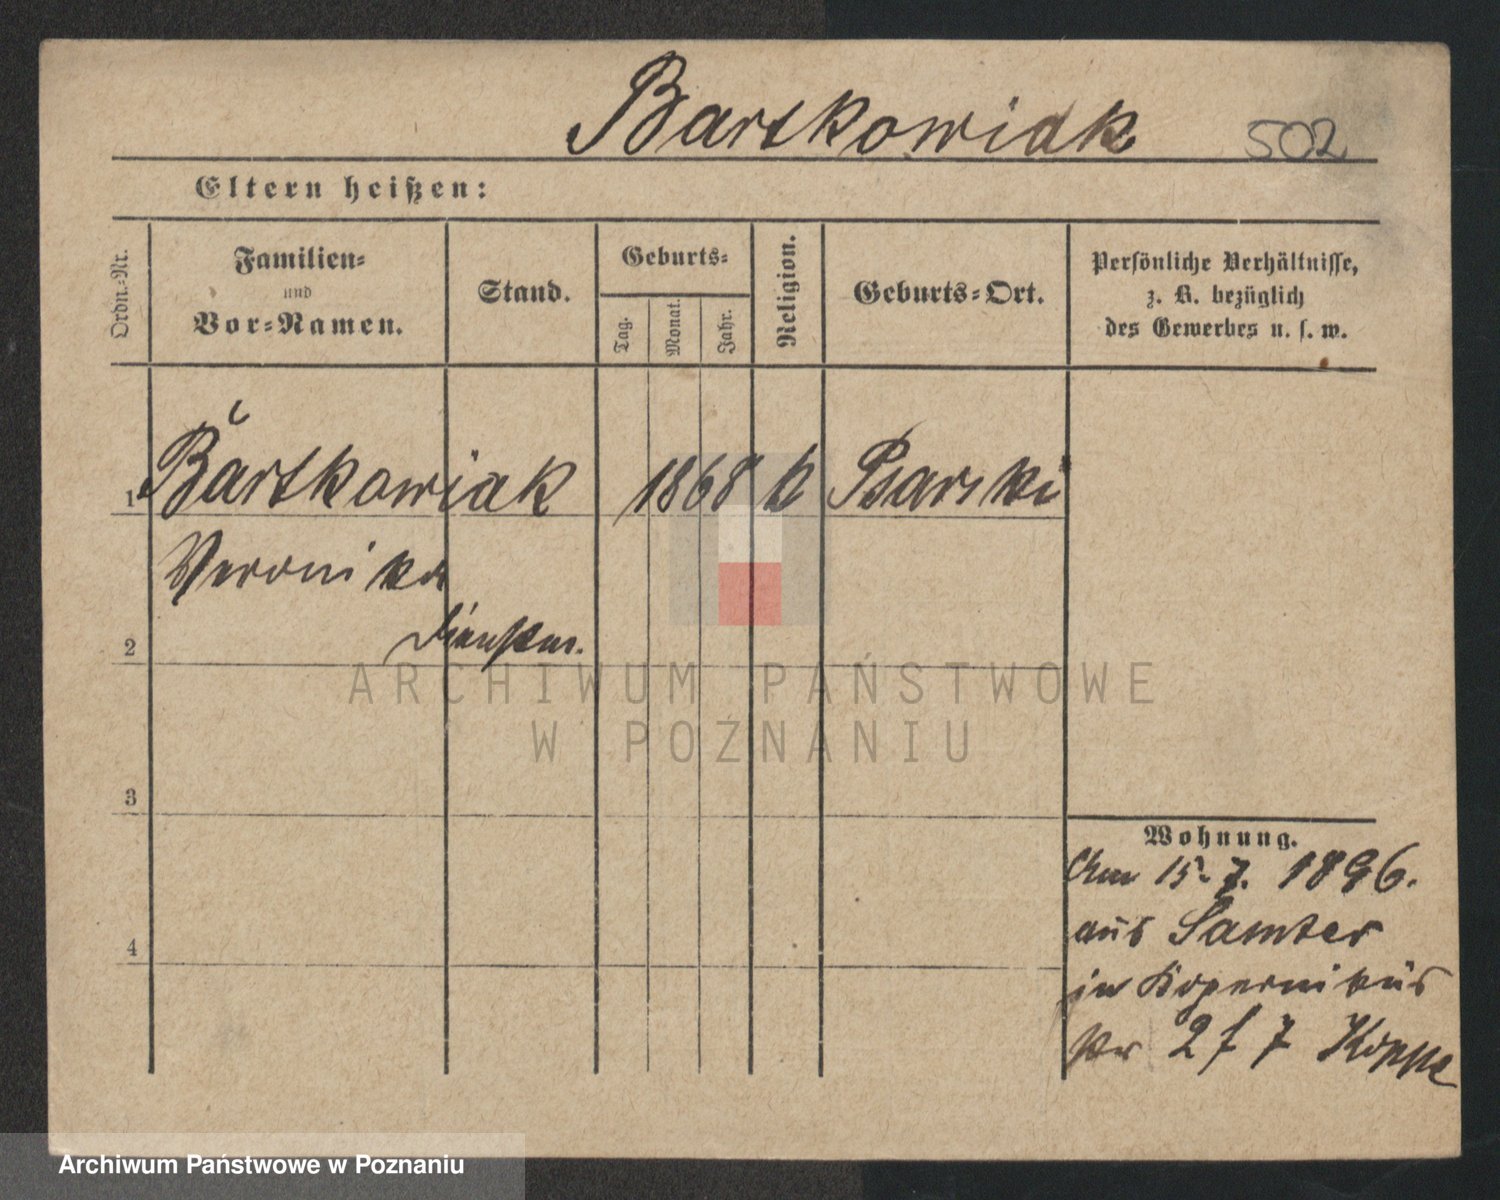 Bartkowiak 502
Eltern heißen:
Ordn.-Nr.
Familien-
und
Vor-Namen.
Stand.
Geburts-
Tag.
Monat.
Jahr.
Religion.
Geburts-Ort.
Persönliche Verhältnisse,
z. B. bezüglich
des Gewerbes u. s. w.
1 Bartkowiak 1868 k Psarski
Veronika
2
3
4
Wohnung.
Am 15. 7. 1896.
aus Samter
in Kopernikus
2 7 Koppe
ARCHIWUM PAŃSTWOWE
W POZNANIU
Archiwum Państwowe w Poznaniu